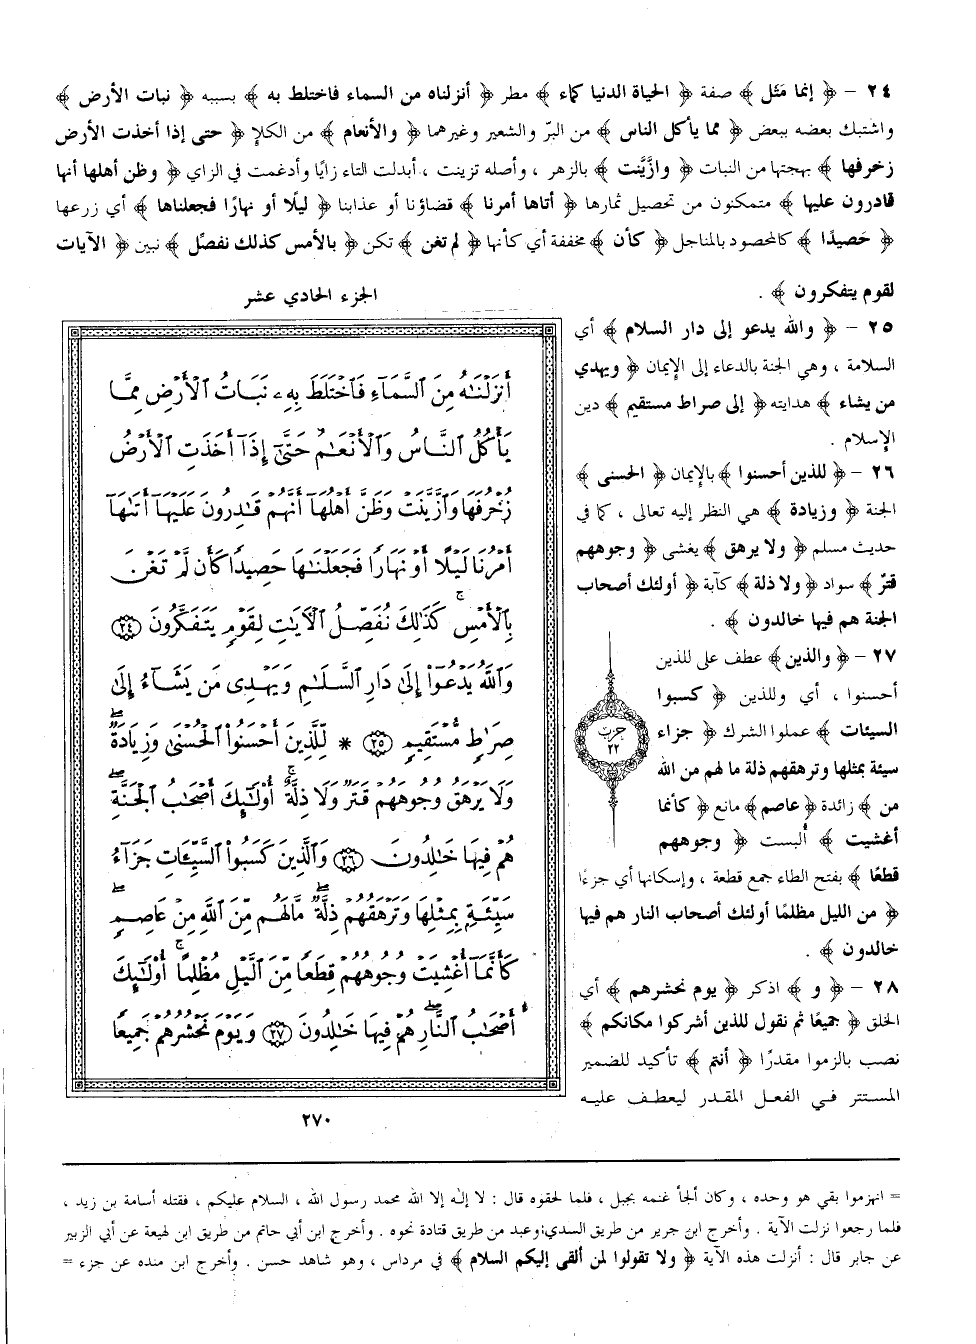 ٢٤ - ﴿ إنما مَثَل ﴾ صفة ﴿ الحياة الدنيا كماء ﴾ مطر ﴿ أنزلناه من السماء فاختلط به ﴾ بسببه ﴿ نبات الأرض ﴾
واشتبك بعضه ببعض ﴿ مما يأكل الناس ﴾ من البرّ والشعير وغيرهما ﴿ والأنعام ﴾ من الكلإ ﴿ حتى إذا أخذت الأرض
زخرفها ﴾ بهجتها من النبات ﴿ وازَّيَّنت ﴾ بالزهر ، وأصله تزينت ، أبدلت التاء زايًا وأدغمت في الزاي ﴿ وظن أهلها أنها
قادرون عليها ﴾ متمكنون من تحصيل ثمارها ﴿ أتاها أمرنا ﴾ قضاؤنا أو عذابنا ﴿ ليلًا أو نهارًا فجعلناها ﴾ أي زرعها
﴿ حَصيدًا ﴾ كالمحصود بالمناجل ﴿ كأن ﴾ مخففة أي كأنها ﴿ لم تغن ﴾ تكن ﴿ بالأمس كذلك نفصّل ﴾ نبين ﴿ الآيات
لقوم يتفكرون ﴾ .
٢٥ - ﴿ والله يدعو إلى دار السلام ﴾ أي
السلامة ، وهي الجنة بالدعاء إلى الإيمان ﴿ ويهدي
من يشاء ﴾ هدايته ﴿ إلى صراط مستقيم ﴾ دين
الإسلام .
٢٦ - ﴿ للذين أحسنوا ﴾ بالإيمان ﴿ الحسنى ﴾
الجنة ﴿ وزيادة ﴾ هي النظر إليه تعالى ، كما في
حديث مسلم ﴿ ولا يرهق ﴾ يغشى ﴿ وجوههم
قترٌ ﴾ سواد ﴿ ولا ذلة ﴾ كآبة ﴿ أولئك أصحاب
الجنة هم فيها خالدون ﴾ .
٢٧ - ﴿ والذين ﴾ عطف على للذين
أحسنوا ، أي وللذين ﴿ كسبوا
السيئات ﴾ عملوا الشرك ﴿ جزاء
سيئة بمثلها وترهقهم ذلة ما لهم من الله
من ﴾ زائدة ﴿ عاصم ﴾ مانع ﴿ كأنما
أغشيت ﴾ ألبست ﴿ وجوههم
قطعًا ﴾ بفتح الطاء جمع قطعة ، وإسكانها أي جزءًا
﴿ من الليل مظلمًا أولئك أصحاب النار هم فيها
خالدون ﴾ .
٢٨ - ﴿ و ﴾ اذكر ﴿ يوم نحشرهم ﴾ أي
الخلق ﴿ جميعًا ثم نقول للذين أشركوا مكانكم ﴾
نصب بالزموا مقدرًا ﴿ أنتم ﴾ تأكيد للضمير
المستتر في الفعل المقدر ليعطف عليه
الجزء الحادي عشر
أَنزَلْنَٰهُ مِنَ ٱلسَّمَآءِ فَٱخْتَلَطَ بِهِۦ نَبَاتُ ٱلْأَرْضِ مِمَّا
يَأْكُلُ ٱلنَّاسُ وَٱلْأَنْعَٰمُ حَتَّىٰٓ إِذَآ أَخَذَتِ ٱلْأَرْضُ
زُخْرُفَهَا وَٱزَّيَّنَتْ وَظَنَّ أَهْلُهَآ أَنَّهُمْ قَٰدِرُونَ عَلَيْهَآ أَتَىٰهَآ
أَمْرُنَا لَيْلًا أَوْ نَهَارًا فَجَعَلْنَٰهَا حَصِيدًا كَأَن لَّمْ تَغْنَ
بِٱلْأَمْسِ ۚ كَذَٰلِكَ نُفَصِّلُ ٱلْآيَٰتِ لِقَوْمٍ يَتَفَكَّرُونَ ﴿٢٤﴾
وَٱللَّهُ يَدْعُوٓا۟ إِلَىٰ دَارِ ٱلسَّلَٰمِ وَيَهْدِى مَن يَشَآءُ إِلَىٰ
صِرَٰطٍ مُّسْتَقِيمٍ ﴿٢٥﴾ * لِّلَّذِينَ أَحْسَنُوا۟ ٱلْحُسْنَىٰ وَزِيَادَةٌ ۖ
وَلَا يَرْهَقُ وُجُوهَهُمْ قَتَرٌ وَلَا ذِلَّةٌ ۚ أُو۟لَٰٓئِكَ أَصْحَٰبُ ٱلْجَنَّةِ ۖ
هُمْ فِيهَا خَٰلِدُونَ ﴿٢٦﴾ وَٱلَّذِينَ كَسَبُوا۟ ٱلسَّيِّـَٔاتِ جَزَآءُ
سَيِّئَةٍۭ بِمِثْلِهَا وَتَرْهَقُهُمْ ذِلَّةٌ ۖ مَّا لَهُم مِّنَ ٱللَّهِ مِنْ عَاصِمٍ ۖ
كَأَنَّمَآ أُغْشِيَتْ وُجُوهُهُمْ قِطَعًا مِّنَ ٱلَّيْلِ مُظْلِمًا ۚ أُو۟لَٰٓئِكَ
أَصْحَٰبُ ٱلنَّارِ ۖ هُمْ فِيهَا خَٰلِدُونَ ﴿٢٧﴾ وَيَوْمَ نَحْشُرُهُمْ جَمِيعًا
حزب
٢٢
٢٧٠
= انهزموا بقي هو وحده ، وكان ألجأ غنمه بجبل ، فلما لحقوه قال : لا إله إلا الله محمد رسول الله ، السلام عليكم ، فقتله أسامة بن زيد ،
فلما رجعوا نزلت الآية . وأخرج ابن جرير من طريق السدي وعبد من طريق قتادة نحوه . وأخرج ابن أبي حاتم من طريق ابن لهيعة عن أبي الزبير
عن جابر قال : أنزلت هذه الآية ﴿ ولا تقولوا لمن ألقى إليكم السلام ﴾ في مرداس ، وهو شاهد حسن . وأخرج ابن منده عن جزء =